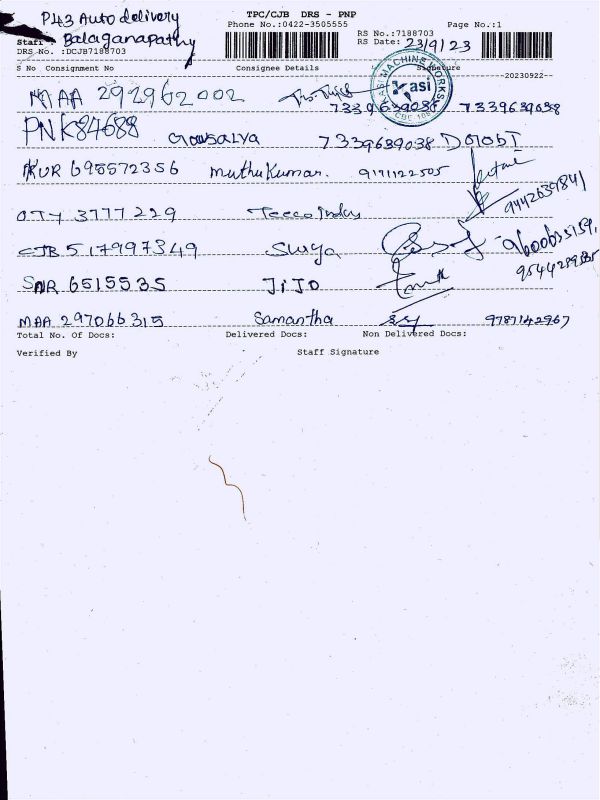 P43 Auto delivery
TPC/CJB DRS - PNP
Phone No.:0422-3505555
Page No.:1
RS No.:7188703
Staff : Balaganapathy
RS Date: 23/9/23
DRS No. :DCJB7188703
S No Consignment No Consignee Details Signature
--20230922--
MAA 292962002 7339639038 7339639038
MACHINE WORKS
asi
CBE
PNK84688 Gowsalya 7339639038
KUR 695572356 Muthu Kumar. 9171122505
9442639841
OTY 3777229
CJB 517997349 Surya
SNR 6515535 JiJO
MAA 297066315 Samantha 9787142967
Total No. Of Docs: Delivered Docs: Non Delivered Docs:
Verified By Staff Signature